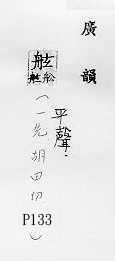 廣韻
舷
舩
舷
平聲：
（一先 胡田切 P133）